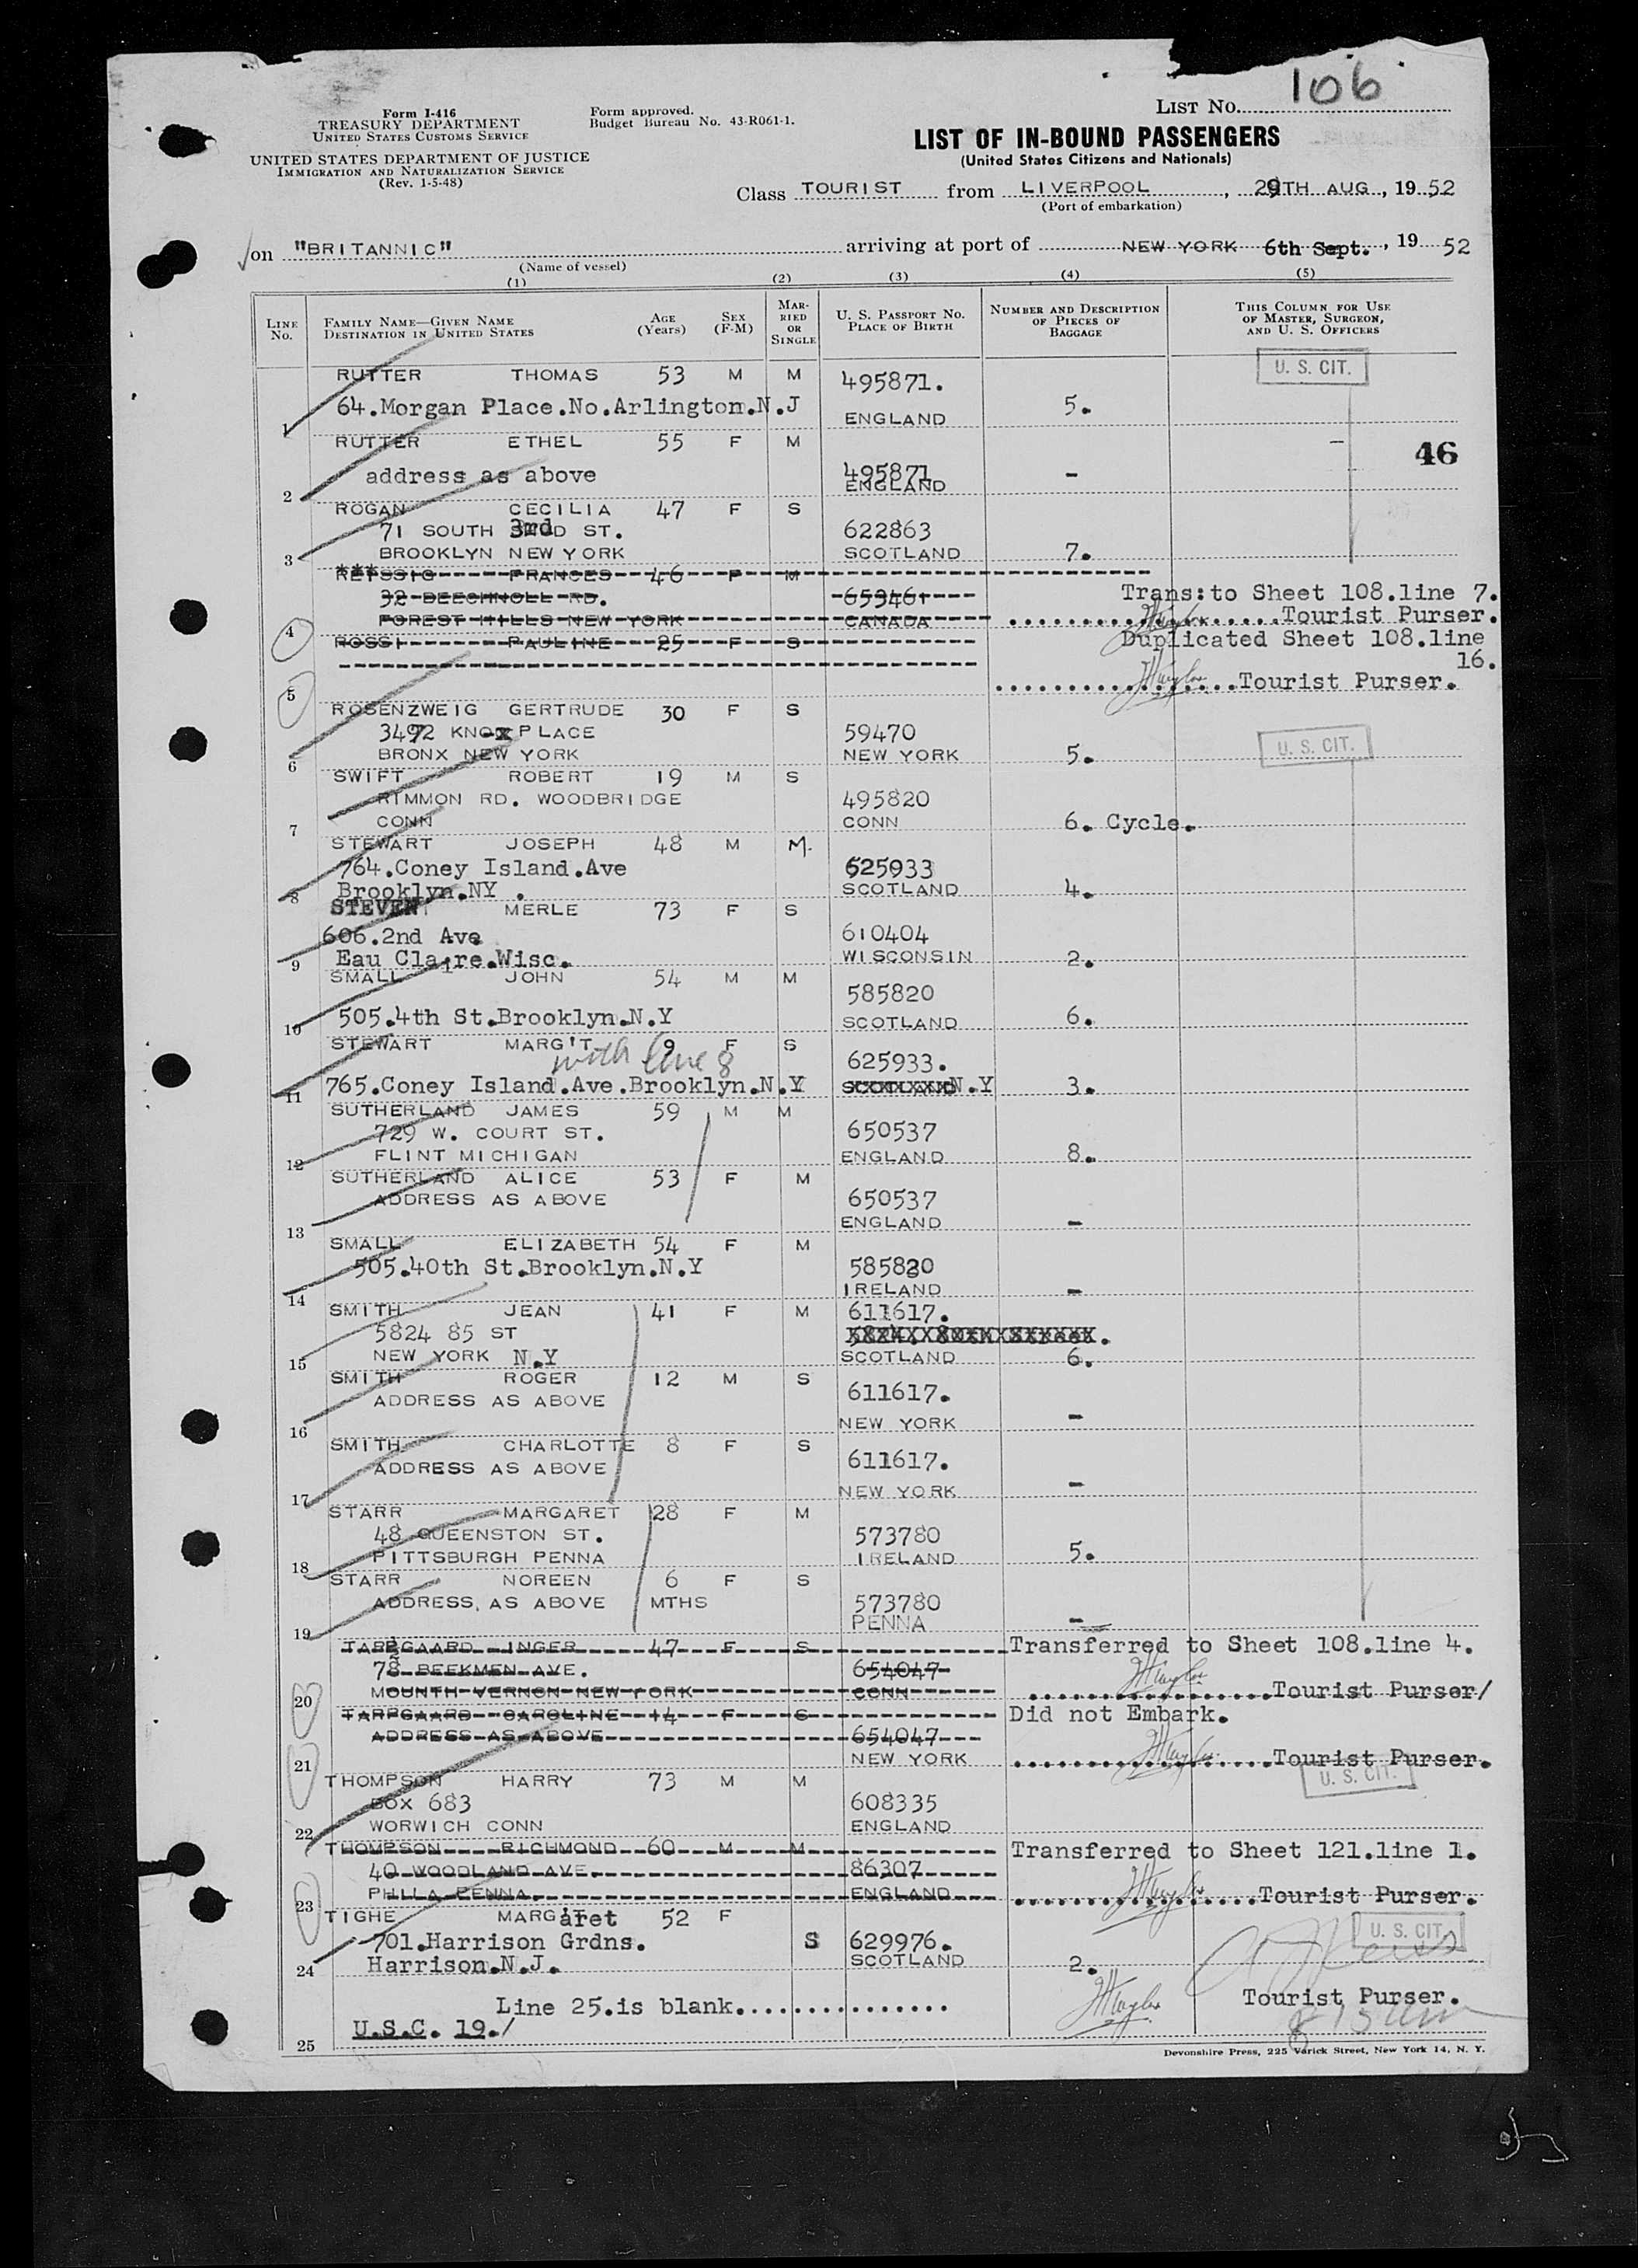 LIST No. 106
Form I-416
TREASURY DEPARTMENT
UNITED STATES CUSTOMS SERVICE
Form approved.
Budget Bureau No. 43-R061-1.
UNITED STATES DEPARTMENT OF JUSTICE
IMMIGRATION AND NATURALIZATION SERVICE
(Rev. 1-5-48)
LIST OF IN-BOUND PASSENGERS
(United States Citizens and Nationals)
Class TOURIST from LIVERPOOL, 29TH AUG, 1952
(Port of embarkation)
on "BRITANNIC" arriving at port of NEW YORK 6th Sept., 1952
(Name of vessel)
(1) (2) (3) (4) (5)
LINE No. FAMILY NAME—GIVEN NAME DESTINATION IN UNITED STATES AGE (Years) SEX (F-M) MARRIED OR SINGLE U. S. PASSPORT No. PLACE OF BIRTH NUMBER AND DESCRIPTION OF PIECES OF BAGGAGE THIS COLUMN FOR USE OF MASTER, SURGEON, AND U. S. OFFICERS
U. S. CIT.
RUTTER THOMAS 53 M M 495871.
64.Morgan Place.No.Arlington.N.J ENGLAND 5.
1
RUTTER ETHEL 55 F M
46
address as above 495871 ENGLAND -
2
ROGAN CECILIA 47 F S
71 SOUTH 3rd ST. 622863
3 BROOKLYN NEW YORK SCOTLAND 7.
REISSIG FRANCES 46 F M
32 BEECHNOLL RD. 653461 Trans:to Sheet 108.line 7.
4 FOREST HILLS NEW YORK CANADA Tourist Purser.
ROSSI PAULINE 25 F S Duplicated Sheet 108.line 16.
5 Tourist Purser.
ROSENZWEIG GERTRUDE 30 F S
3492 KNOX PLACE 59470 U. S. CIT.
6 BRONX NEW YORK NEW YORK 5.
SWIFT ROBERT 19 M S
RIMMON RD. WOODBRIDGE 495820
7 CONN CONN 6. Cycle.
STEWART JOSEPH 48 M M.
764.Coney Island.Ave 625933
8 Brooklyn.NY . SCOTLAND 4.
STEVEN MERLE 73 F S
606.2nd Ave 610404
9 Eau Claire.Wisc. WISCONSIN 2.
SMALL JOHN 54 M M
585820
10 505.4th St.Brooklyn.N.Y SCOTLAND 6.
STEWART MARG'T 9 F S
with line 8 625933.
11 765.Coney Island.Ave.Brooklyn.N.Y N.Y 3.
SUTHERLAND JAMES 59 M M
729 W. COURT ST. 650537
12 FLINT MICHIGAN ENGLAND 8.
SUTHERLAND ALICE 53 F M
ADDRESS AS ABOVE 650537
13 ENGLAND -
SMALL ELIZABETH 54 F M
505.40th St.Brooklyn.N.Y 585820
14 IRELAND -
SMITH JEAN 41 F M 611617.
5824 85 ST
15 NEW YORK N.Y SCOTLAND 6.
SMITH ROGER 12 M S
ADDRESS AS ABOVE 611617.
16 NEW YORK -
SMITH CHARLOTTE 8 F S
ADDRESS AS ABOVE 611617.
17 NEW YORK -
STARR MARGARET 28 F M
48 QUEENSTON ST. 573780
18 PITTSBURGH PENNA IRELAND 5.
STARR NOREEN 6 F S
ADDRESS, AS ABOVE MTHS 573780
19 PENNA -
TARPGAARD INGER 47 F S Transferred to Sheet 108.line 4.
78 BEEKMEN AVE. 654047
20 MOUNTH VERNON NEW YORK CONN Tourist Purser/
TARPGAARD CAROLINE 14 F S Did not Embark.
ADDRESS AS ABOVE 654047
21 NEW YORK Tourist Purser.
U. S. CIT.
THOMPSON HARRY 73 M M
BOX 683 608335
22 WORWICH CONN ENGLAND
THOMPSON RICHMOND 60 M M Transferred to Sheet 121.line 1.
40 WOODLAND AVE. 86307
23 PHLLA PENNA. ENGLAND Tourist Purser.
TIGHE MARGaret 52 F
U. S. CIT.
701.Harrison Grdns. S 629976.
24 Harrison.N.J. SCOTLAND 2.
Line 25.is blank............... Tourist Purser.
U.S.C. 19./
25
Devonshire Press, 225 Varick Street, New York 14, N. Y.